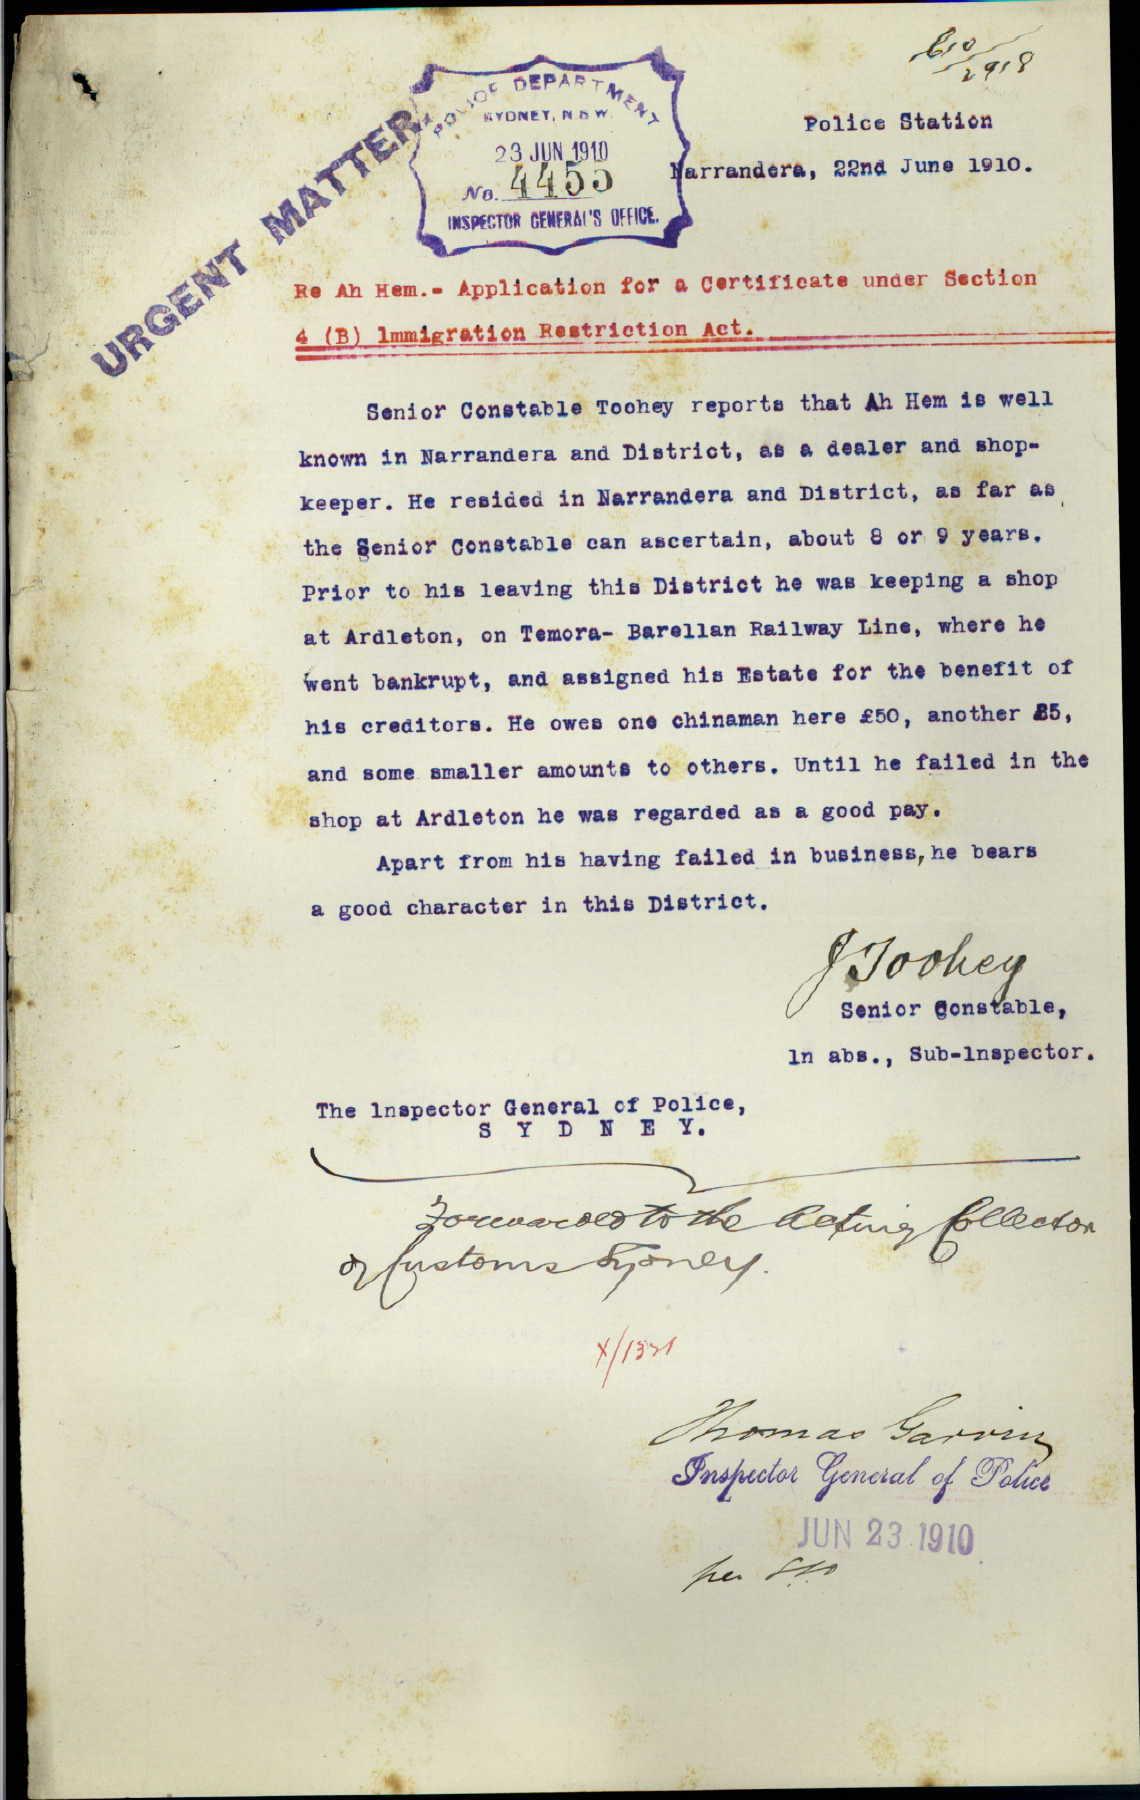 C10/2918
POLICE DEPARTMENT
SYDNEY, N.S.W.
23 JUN 1910
No. 4455
INSPECTOR GENERAL'S OFFICE.
URGENT MATTER
Police Station
Narrandera, 22nd June 1910.
Re Ah Hem.- Application for a Certificate under Section
4 (B) lmmigration Restriction Act.
Senior Constable Toohey reports that Ah Hem is well
known in Narrandera and District, as a dealer and shop-
keeper. He resided in Narrandera and District, as far as
the Senior Constable can ascertain, about 8 or 9 years.
Prior to his leaving this District he was keeping a shop
at Ardleton, on Temora- Barellan Railway Line, where he
went bankrupt, and assigned his Estate for the benefit of
his creditors. He owes one chinaman here £50, another £5,
and some smaller amounts to others. Until he failed in the
shop at Ardleton he was regarded as a good pay.
Apart from his having failed in business, he bears
a good character in this District.
J Toohey
Senior Constable,
ln abs., Sub-lnspector.
The lnspector General of Police,
S Y D N E Y.
Forwarded to the Acting Collector
of Customs Sydney.
X/1331
Thomas Garvin
Inspector General of Police
JUN 23 1910
per